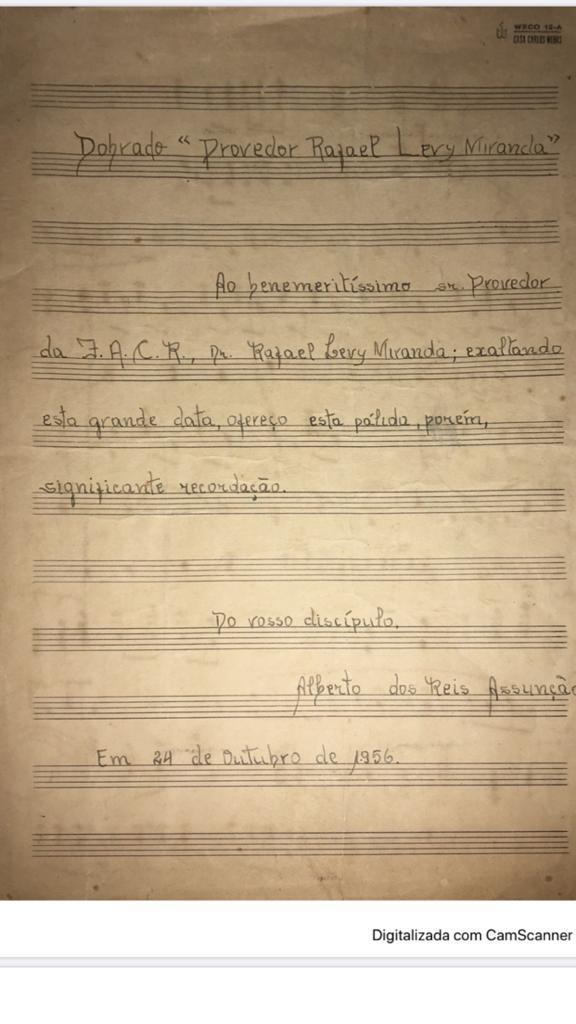 WECO 12-A
CASA CARLOS WEHRS
Dobrado "Provedor Rafael Levy Miranda"
Ao benemeritíssimo sr. Provedor
da F. A. C. R., Dr. Rafael Levy Miranda; exaltando
esta grande data, ofereço esta pálida, porém,
significante recordação.
Do vosso discípulo,
Alberto dos Reis Assunção
Em 24 de Outubro de 1956.
Digitalizada com CamScanner